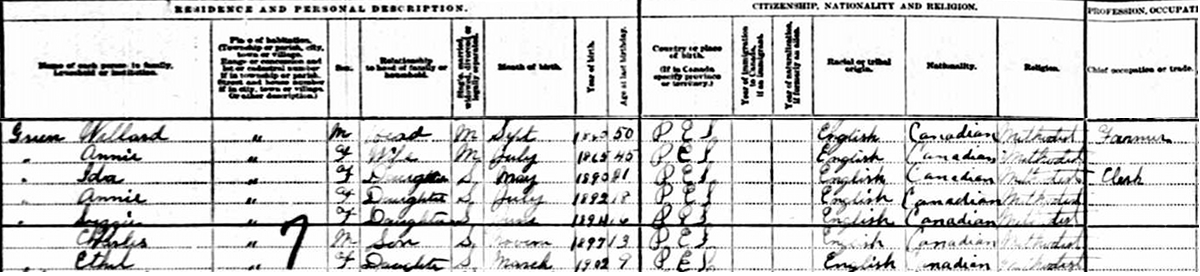 RESIDENCE AND PERSONAL DESCRIPTION.
CITIZENSHIP, NATIONALITY AND RELIGION.
PROFESSION, OCCUPATI
Name of each person in family, household or institution.
Place of habitation. (Township or parish, city, town or village. Range or concession and lot or cadastral number If in township or parish. Street and house number if in city, town or village. Or other description.)
Sex.
Relationship to head of family or household.
Single, married, widowed, divorced or legally separated.
Month of birth.
Year of birth.
Age at last birthday.
Country or place of birth. (If in Canada specify province or territory.)
Year of immigration to Canada, if an immigrant.
Year of naturalization, if formerly an alien.
Racial or tribal origin.
Nationality.
Religion.
Chief occupation or trade.
Green Willard " M Head M Sept 50 P E I English Canadian Methodist Farmer
" Annie " F Wife M July 1865 45 P E I English Canadian Methodist
" Ida " F Daughter S May 1890 P E I English Canadian Methodist Clerk
" Annie " F Daughter S July 1892 18 P E I English Canadian Methodist
" " F Daughter S June 1894 16 P E I English Canadian Methodist
Charles " M Son S Novem 1897 13 P E I English Canadian Methodist
Ethel " F Daughter S March 1902 9 P E I English Canadian Methodist
7